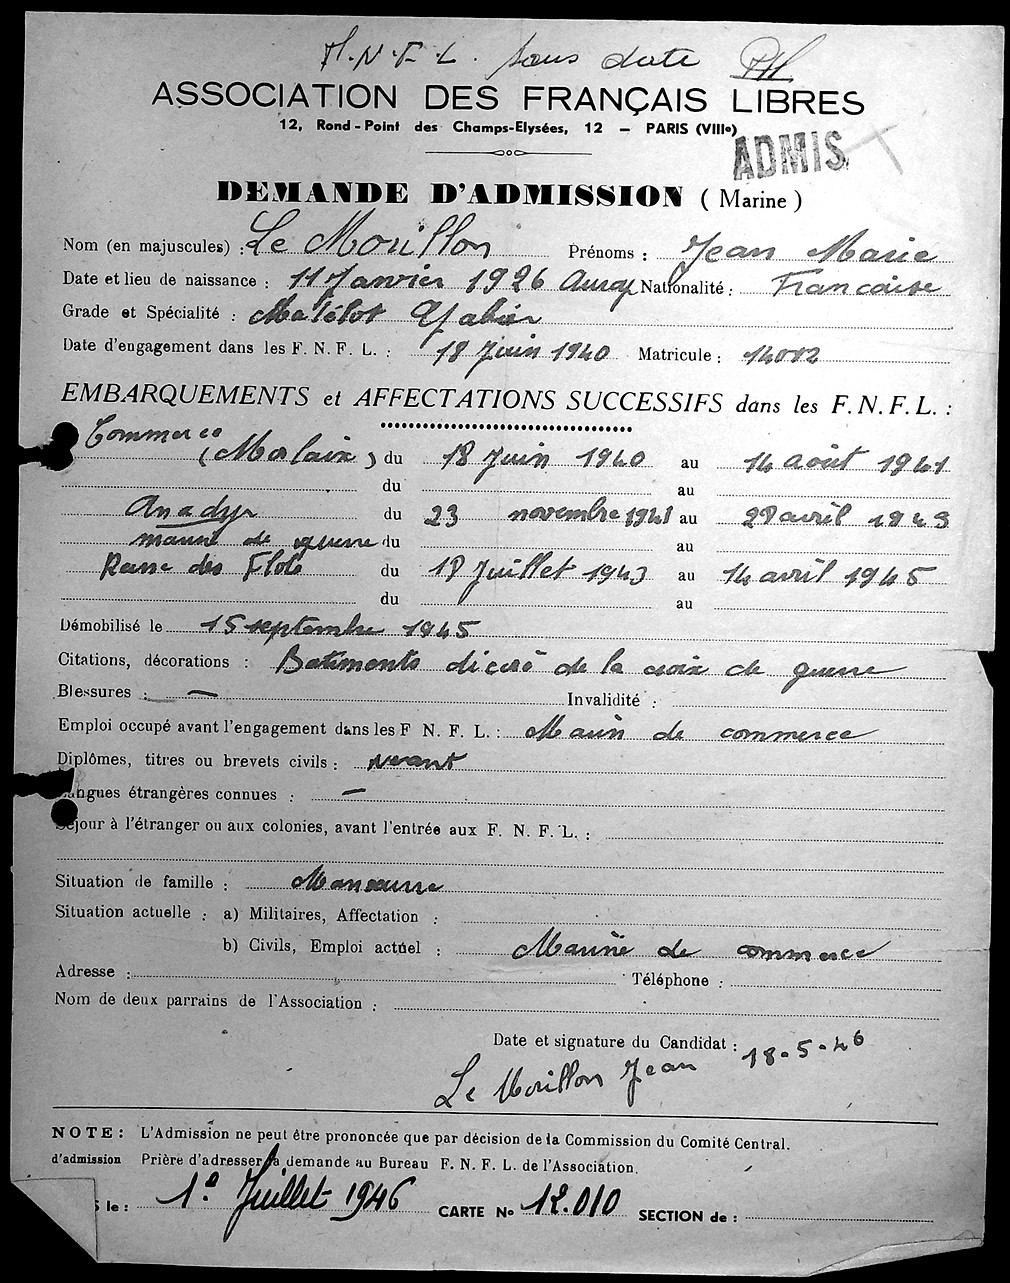 F.N.F.L. sans date PH
ASSOCIATION DES FRANÇAIS LIBRES
12, Rond-Point des Champs-Elysées, 12 — PARIS (VIIIe)
ADMIS
DEMANDE D'ADMISSION (Marine)
Nom (en majuscules) : Le Mouillon Prénoms : Jean Marie
Date et lieu de naissance : 11 Janvier 1926 Auray Nationalité : Francaise
Grade et Spécialité : Matelot Gabier
Date d'engagement dans les F. N. F. L. : 18 Juin 1940 Matricule : 14012
EMBARQUEMENTS et AFFECTATIONS SUCCESSIFS dans les F. N. F. L. :
Commerce
(Morlaix) du 18 Juin 1940 au 14 août 1941
du au
Anadyr du 23 novembre 1941 au 28 avril 1943
marine de guerre du au
Passe des Flots du 18 Juillet 1943 au 14 avril 1945
du au
Démobilisé le 15 septembre 1945
Citations, décorations : Batiments décoré de la croix de guerre
Blessures : — Invalidité :
Emploi occupé avant l'engagement dans les F N. F. L. : Marin de commerce
Diplômes, titres ou brevets civils : neant
Langues étrangères connues : —
Séjour à l'étranger ou aux colonies, avant l'entrée aux F. N. F. L. :
Situation de famille :
Situation actuelle : a) Militaires, Affectation :
b) Civils, Emploi actuel : Marine de commerce
Adresse : Téléphone :
Nom de deux parrains de l'Association :
Date et signature du Candidat : 18-5-46
Le Mouillon Jean
NOTE : L'Admission ne peut être prononcée que par décision de la Commission du Comité Central.
d'admission Prière d'adresser la demande au Bureau F. N. F. L. de l'Association.
s le : 1º Juillet 1946 CARTE No 12.010 SECTION de :